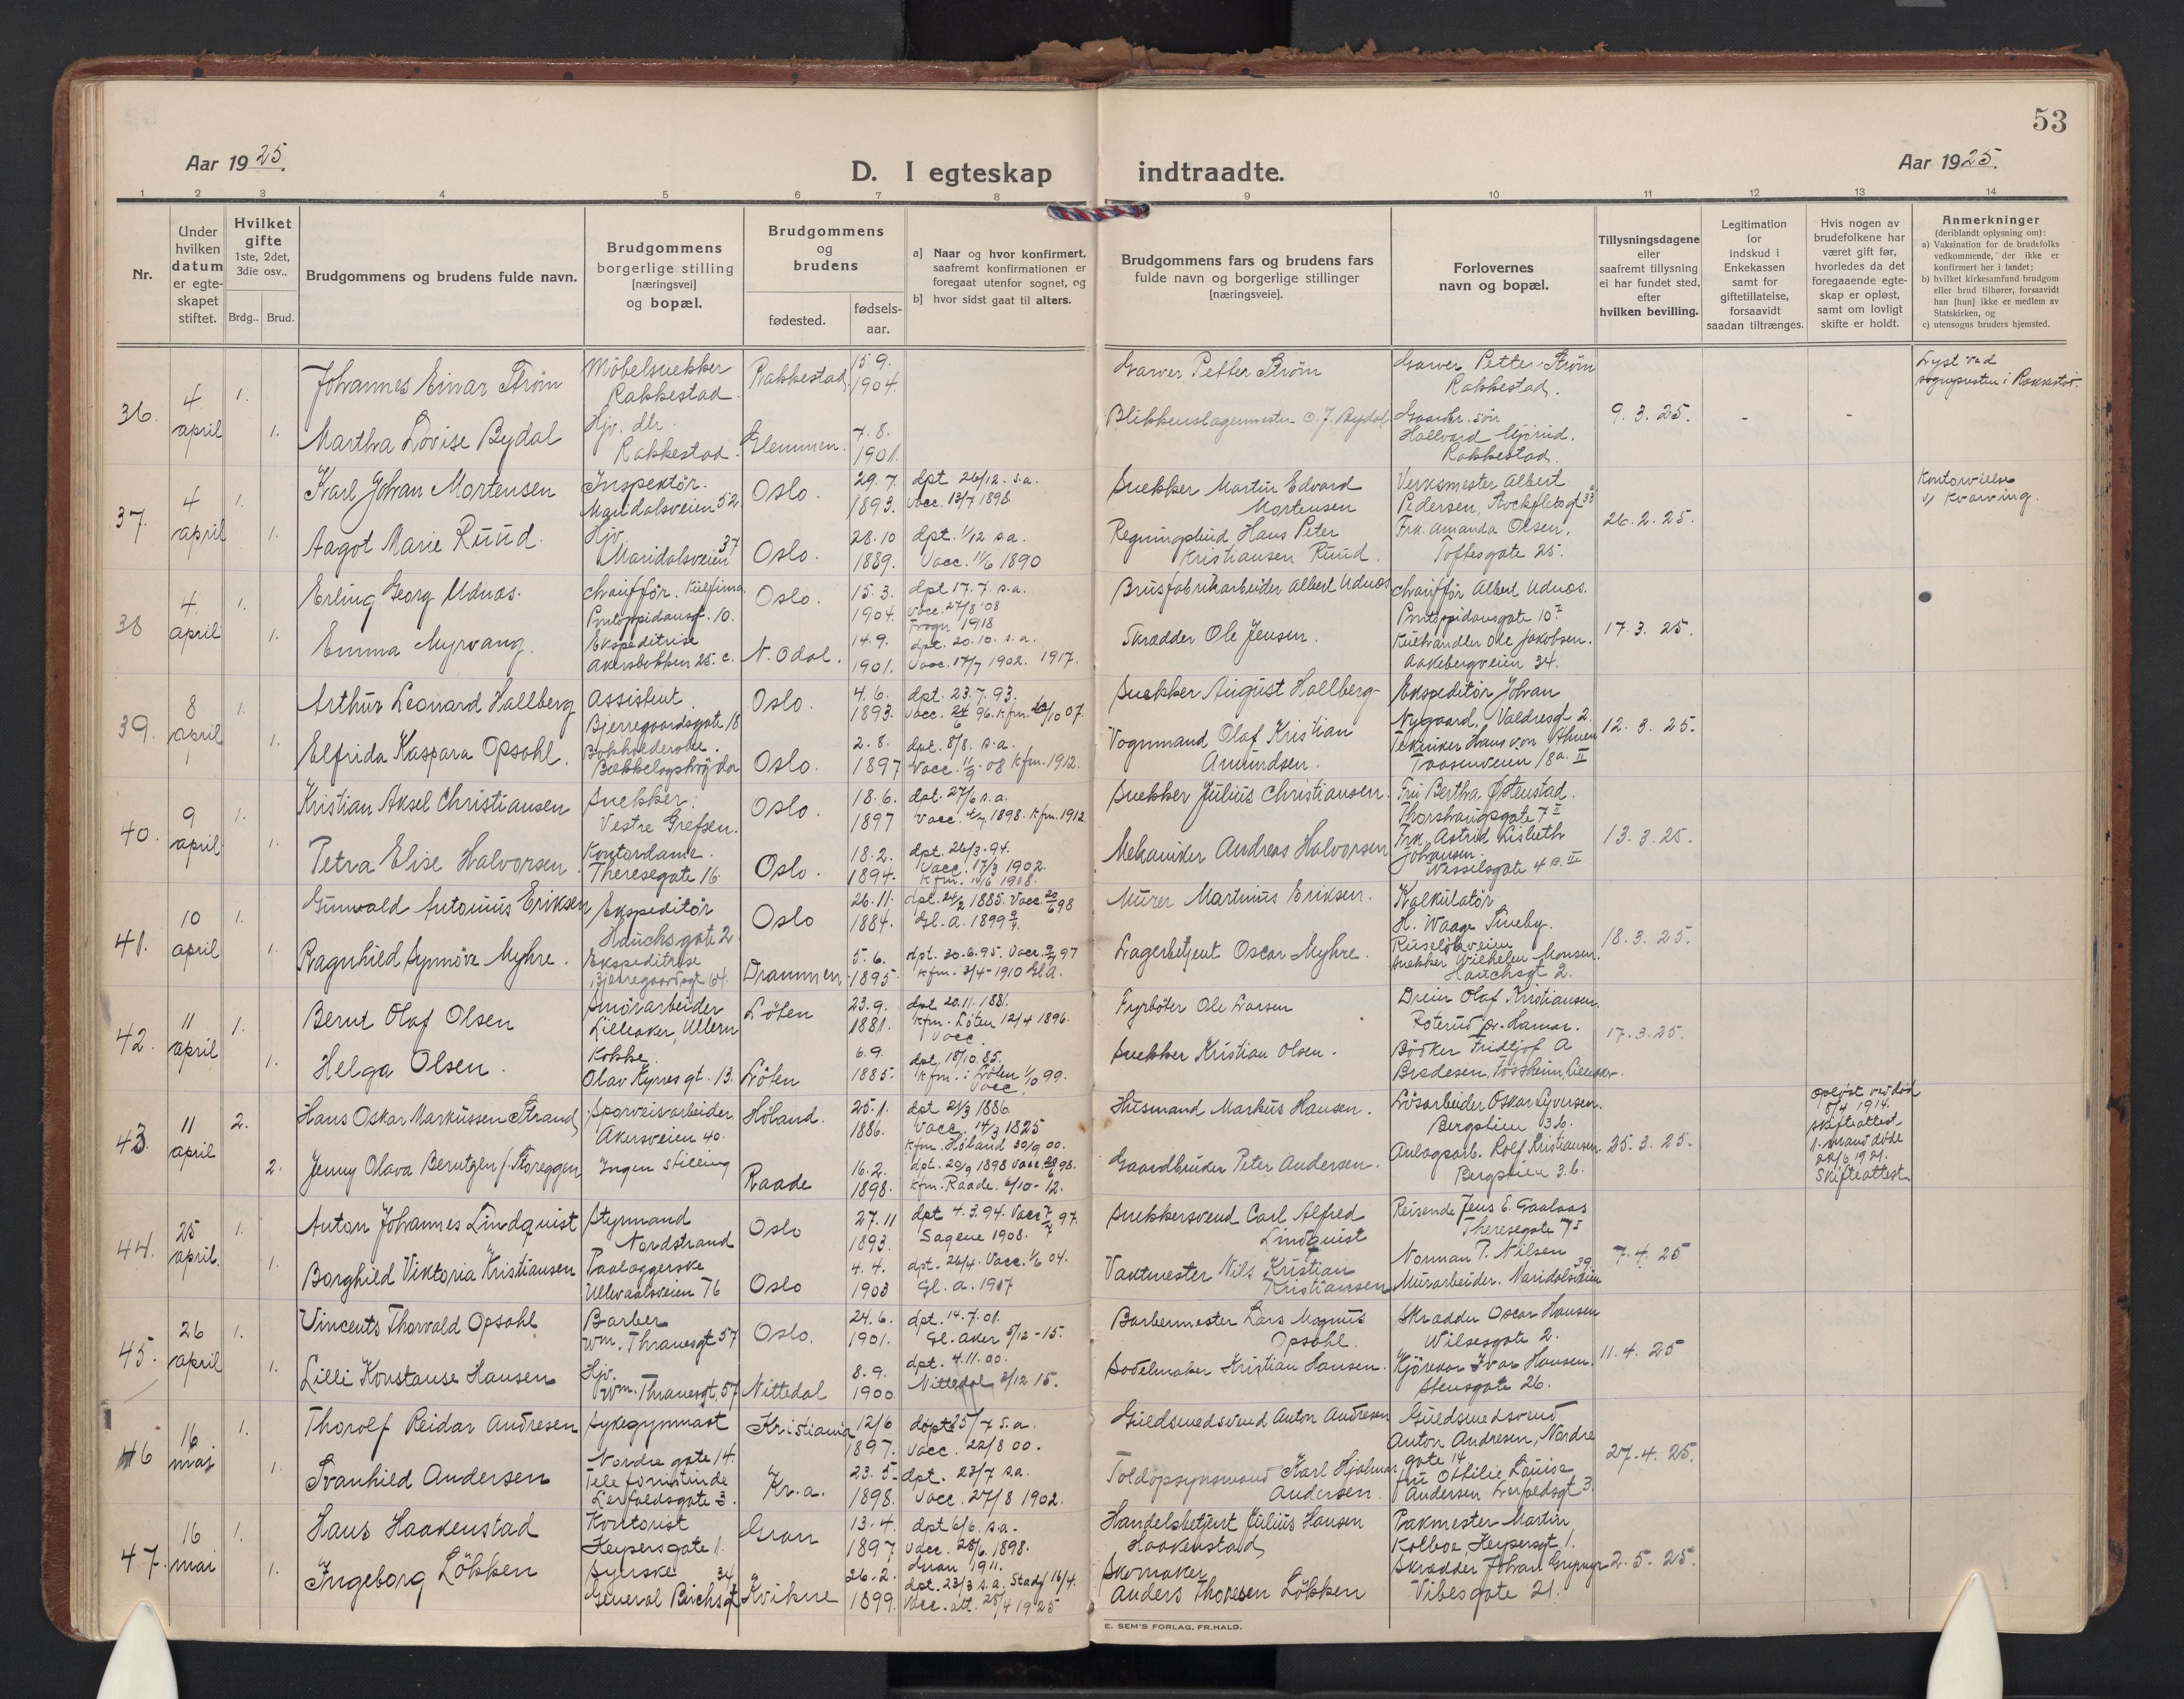 53
Aar 1925.
D. I egteskap indtraadte.
Aar 1925.
1 2 3 4 5 6 7 8 9 10 11 12 13 14
Nr.
Under hvilken datum er egte-skapet stiftet.
Hvilket gifte 1ste, 2det, 3die osv..
Brdg.. Brud.
Brudgommens og brudens fulde navn.
Brudgommens borgerlige stilling [næringsvei] og bopæl.
Brudgommens og brudens
fødested.
fødsels-aar.
a] Naar og hvor konfirmert, saafremt konfirmationen er foregaat utenfor sognet, og
b] hvor sidst gaat til alters.
Brudgommens fars og brudens fars fulde navn og borgerlige stillinger [næringsveie].
Forlovernes navn og bopæl.
Tillysningsdagene eller saafremt tillysning ei har fundet sted, efter hvilken bevilling.
Legitimation for indskud i Enkekassen samt for giftetillatelse, forsaavidt saadan tiltrænges.
Hvis nogen av brudefolkene har været gift før, hvorledes da det foregaaende egte-skap er opløst, samt om lovligt skifte er holdt.
Anmerkninger (deriblandt oplysning om):
a) Vaksination for de brudefolks vedkommende, der ikke er konfirmert her i landet;
b) hvilket kirkesamfund brudgom eller brud tilhører, forsaavidt han [hun] ikke er medlem av Statskirken, og
c) utensogns bruders hjemsted.
36. 4 april 1. Johannes Einar Strøm Möbelsnekker Rakkestad. Rakkestad. 15.9. 1904. Garver Petter Strøm Garver Petter Strøm Rakkestad. 9.3.25. - - Lyst ved sognepresten i Rakkestad.
1. Martha Lovise Bydal Hjv. dtr. Rakkestad. Glemmen. 7.8. 1901. Blikkenslagermester O. J. Bydal Hallvard Mjørud. Rakkestad.
37. 4 april 1. Karl Johan Mortensen Inspektör. Maridalsveien 52. Oslo. 29.7. 1893. dpt 26/12. s.a. Vacc. 13/7 1898. Snekker Martin Edvard Mortensen Verksmester Albert Pedersen, 26.2.25. Kontorvielse v/ Kvarving.
1. Aagot Marie Ruud. Hjv. Maridalsveien 37 Oslo. 28.10 1889. dpt. 1/12 s.a. Vacc. 11/6 1890 Regningsbud Hans Peter Kristiansen Ruud. Frk. Amanda Olsen, Toftesgate 25.
38 4 april 1. Erling Georg Udnæs. chauffør. Oslo. 15.3. 1904. dpt 17.7. s.a. Vacc. 27/8 '08 Trogn 1918 Brusfabrikarbeider Albert Udnæs chauffør Albert Udnæs. Pontoppidansgate 10 17.3.25.
1. Emma Myrvang. Ekspeditrise Akersbakken 25. c. N. Odal. 14.9. 1901. dpt. 20.10. s.a. Vacc. 17/7 1902. 1917. Skrædder Ole Jensen. Kulhandler Ole Jakobsen. Aakebergveien 34.
39. 8 april 1. Arthur Leonard Hallberg Assistent. Bjerregaardsgate 18 Oslo. 4.6. 1893. dpt. 23.7.93. Vacc. 24/6 96. Kfm. 20/10 07. Snekker August Hallberg Ekspeditör Johan Nygaard, Valdresgt 2. 12.3.25.
1. Elfrida Kaspara Opsahl. Bokholderske. Bækkelagshøgda Oslo. 2.8. 1897 dpt. 8/8. s.a. Vacc. 11/9 08 Kfm. 1912. Vognmand Olaf Kristian Amundsen. Tekniker Hans von Ahnen Taasenveien 18a. II
40. 9 april 1. Kristian Aksel Christiansen Snekker. Vestre Grefsen. Oslo. 18.6. 1897 dpt. 27/6 s.a. Vacc. 1898. Kfm. 1912 Snekker Julius Christiansen. Fru Bertha Østenstad. Thorshaugsgate 7 II 13.3.25.
1. Petra Elise Halvorsen. Kontordame. Theresegate 16. Oslo. 18.2. 1894. dpt. 26/3.94. Vacc. 17/3 1902. Kfm. 1908. Mekaniker Andreas Halvorsen Frk. Astrid Lisbeth Johansen. Wesselsgate 4 III
41. 10 april 1. Gunvald Antonius Eriksen Ekspeditör Hauchsgate 2. Oslo 26.11. 1884. dpt. 24/2 1885. Vacc. 20/6 98 Gl. A. 1899 Murer Martinius Eriksen. Kalkulatör H. Waage Tineby. 18.3.25.
1. Ragnhild Synnöve Myhre. Ekspeditrise Bjerregaardsgt 64. Drammen 5.6. 1895 dpt. 30.6.95. Vacc. 97 Kfm. 3/4-1910 Gl A. Lagerbetjent Oscar Myhre. Snekker Wilhelm Monsen. Hauchsgt 2.
42. 11 april 1. Bernt Olaf Olsen Smörarbeider Lilleaker, Ullern Löten 23.9. 1881. dpt 20.11.1881. Kfm. Löten 12/4 1896. Vacc. Fyrböter Ole Larsen Dreier Olaf Kristiansen. Roterud pr. Hamar. 17.3.25.
1. Helga Olsen. Kokke. Olav Kyrres gt. 13. Löten 6.9. 1885. dpt. 18/10.85. Kfm. i Löten 1/10 99. Vacc. Snekker Kristian Olsen. Bödker Fridtjof A Bredesen, Fossheim, Lilleaker.
43. 11 april 2. Hans Oskar Markussen Strand, Sporveisarbeider Akersveien 40. Höland. 25.1. 1886. dpt 21/3 1886. Vacc. 14/3 1825 Kfm. Höland 30/9 00. Husmand Markus Hansen. Lösarbeider Oskar Syversen. Bergstien 3b. 25.3.25. opløst ved död 8/4 1914. Skifteattest
2. Jenny Olava Berntzen f. Storeggen Ingen stilling Raade 16.2. 1898. dpt. 29/9 1898 Vacc. 98. Kfm. Raade. 6/10-12. Gaardbruker Peter Andersen. Anlægsarb. Rolf Kristiansen Bergstien 3.b. 1. mand døde 22/6 1921. Skifteattest
44. 25 april. 1. Anton Johannes Lindquist Styrmand Nordstrand Oslo 27.11 1893. dpt 4.3.94. Vacc 7/7 97. Sagene 1908. Snekkersvend Carl Alfred Lindquist Reisende Jens E. Gaalaas Theresegate 7 I 7.4.25
1. Borghild Viktoria Kristiansen Paalæggerske Ullevaalsveien 76 Oslo 4.4. 1903 dpt. 26/4. Vacc. 1/6 04. Gl. a. 1917 Vaktmester Nils Kristian Kristiansen Norman T. Nilsen Murarbeider. Maridalsveien 39
45. 26 april 1. Vincents Thorvald Opsahl Barber Wm. Thranesgt 57 Oslo. 24.6. 1901. dpt. 14.7.01. Gl. aker 5/12-15. Barbermester Lars Magnus Opsahl. Skrædder Oscar Hansen Wilsesgate 2. 11.4.25
1. Lilli Konstanse Hansen Hjv. Wm. Thranesgt. 57 Nittedal 8.9. 1900 dpt. 4.11.00. Nittedal 3/12 15. Sadelmaker Kristian Hansen. Kjörekar Ivar Hansen. Stensgate 26.
46 16 mai 1. Thorolf Reidar Andresen Sykegymnast Nordre gate 14. Kristiania 12/6 1897. döpt 25/7 s.a. Vacc. 22/8 00. Guldsmedsvend Anton Andresen Guldsmedsvend Anton Andresen, Nordre gate 14 27.4.25.
1. Svanhild Andersen Telefonistinde Lerfaldsgate 3. Kr.a. 23.5. 1898. dpt. 23/7 s.a. Vacc. 27/8 1902. Toldopsynsmand Karl Hjalmar Andersen. Fru Othilie Louise Andersen Lerfaldsgt 3.
47. 16 mai 1. Hans Haakenstad Kontorist Keysersgate 1. Gran 13.4. 1897 dpt 6/6. s.a. Vacc. 28/6. 1898. Gran 1911. Handelsbetjent Julius Hansen Haakenstad Pakmester Martin Kolboe, Keysersgt 1. 2.5.25.
1. Ingeborg Lökken Syerske General Birchsgt 34 Kvikne 26.2. 1899. dpt. 23/3 s.a. 16/4. Vacc. att. 25/4 1925 Skomaker Anders Thoresen Lökken Skrædder Johan Vibesgate 21.
E. SEM'S FORLAG, FR.HALD.